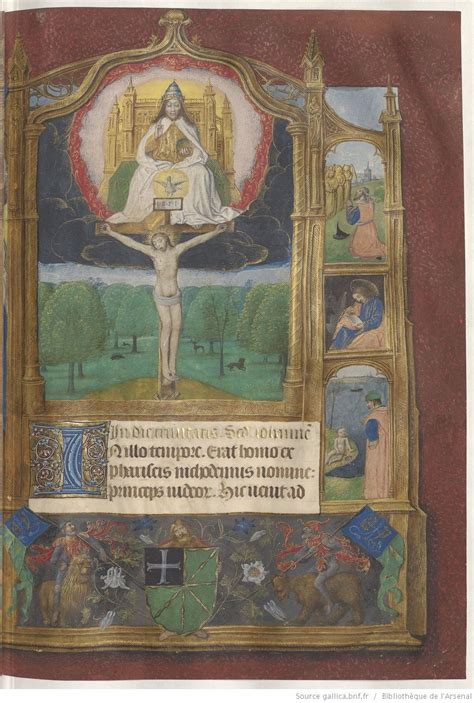 In die trinitatis. Scd͞ iohanne͞
N illo tempore. Erat homo ex
phariseis nichodemus nomine·
princeps iudeor. Hic uenit ad
Source gallica.bnf.fr / Bibliothèque de l'Arsenal